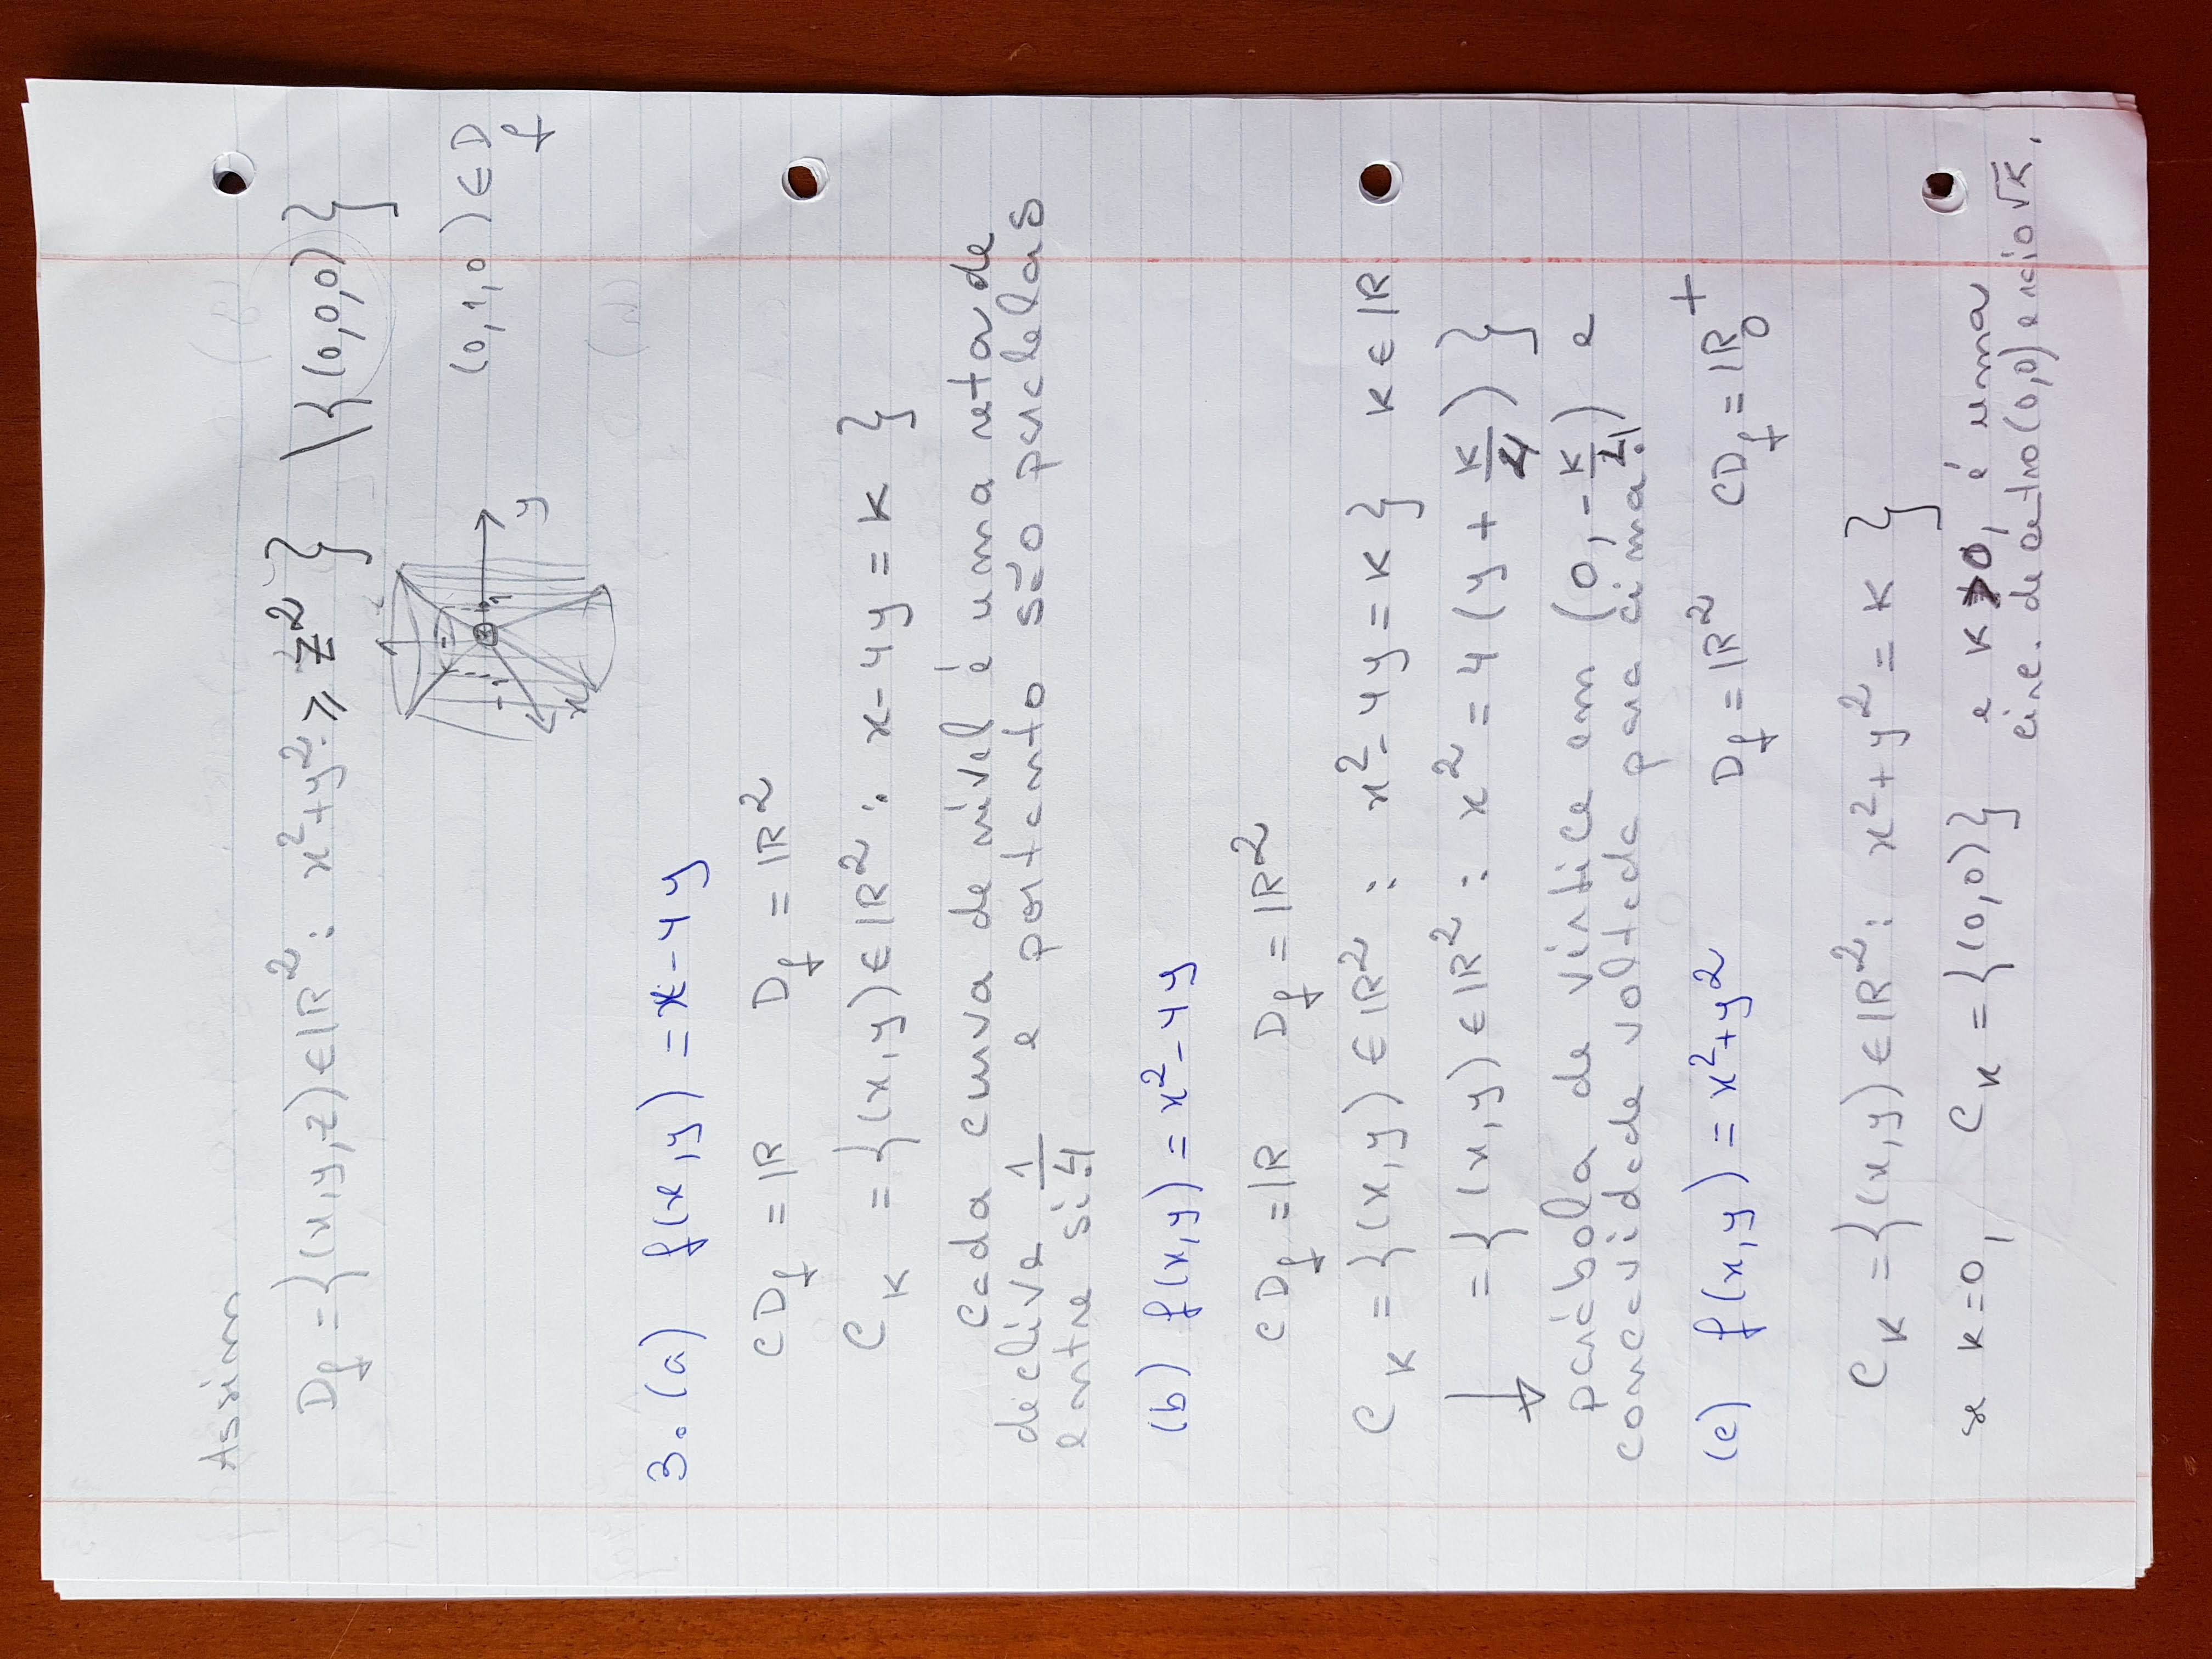 Assim
D_f = {(x,y,z) ∈ IR² : x²+y² ≥ z² } \{(0,0,0)}
(0,1,0) ∈ D_f
-1 1
y
x
3. (a) f(x,y) = x-4y
CD_f = IR D_f = IR²
C_K = {(x,y) ∈ IR² : x-4y = K }
Cada curva de nível é uma reta de
declive 1/4 e portanto são paralelas
entre si.
(b) f(x,y) = x²-4y
CD_f = IR D_f = IR²
C_K = {(x,y) ∈ IR² : x²-4y = K } K ∈ IR
↓ = { (x,y) ∈ IR² : x² = 4 (y + K/4) }
parábola de vértice em (0, -K/4) e
concavidade voltada para cima.
(c) f(x,y) = x²+y² D_f = IR² CD_f = IR₀⁺
C_K = {(x,y) ∈ IR² : x²+y² = K }
se K=0, C_K = {(0,0)} e K>0, é uma
circ. de centro (0,0) e raio √K.